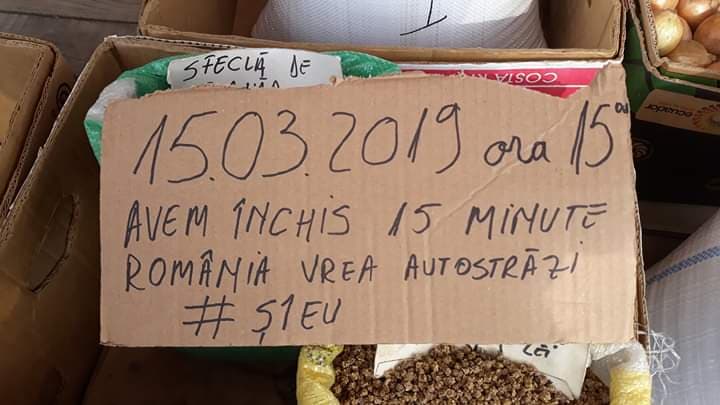 I
SFECLĂ DE
COSTA RI
ecuador
15.03.2019 ora 15⁰⁰
AVEM ÎNCHIS 15 MINUTE
ROMÂNIA VREA AUTOSTRĂZI
# Ș1EU
LEI